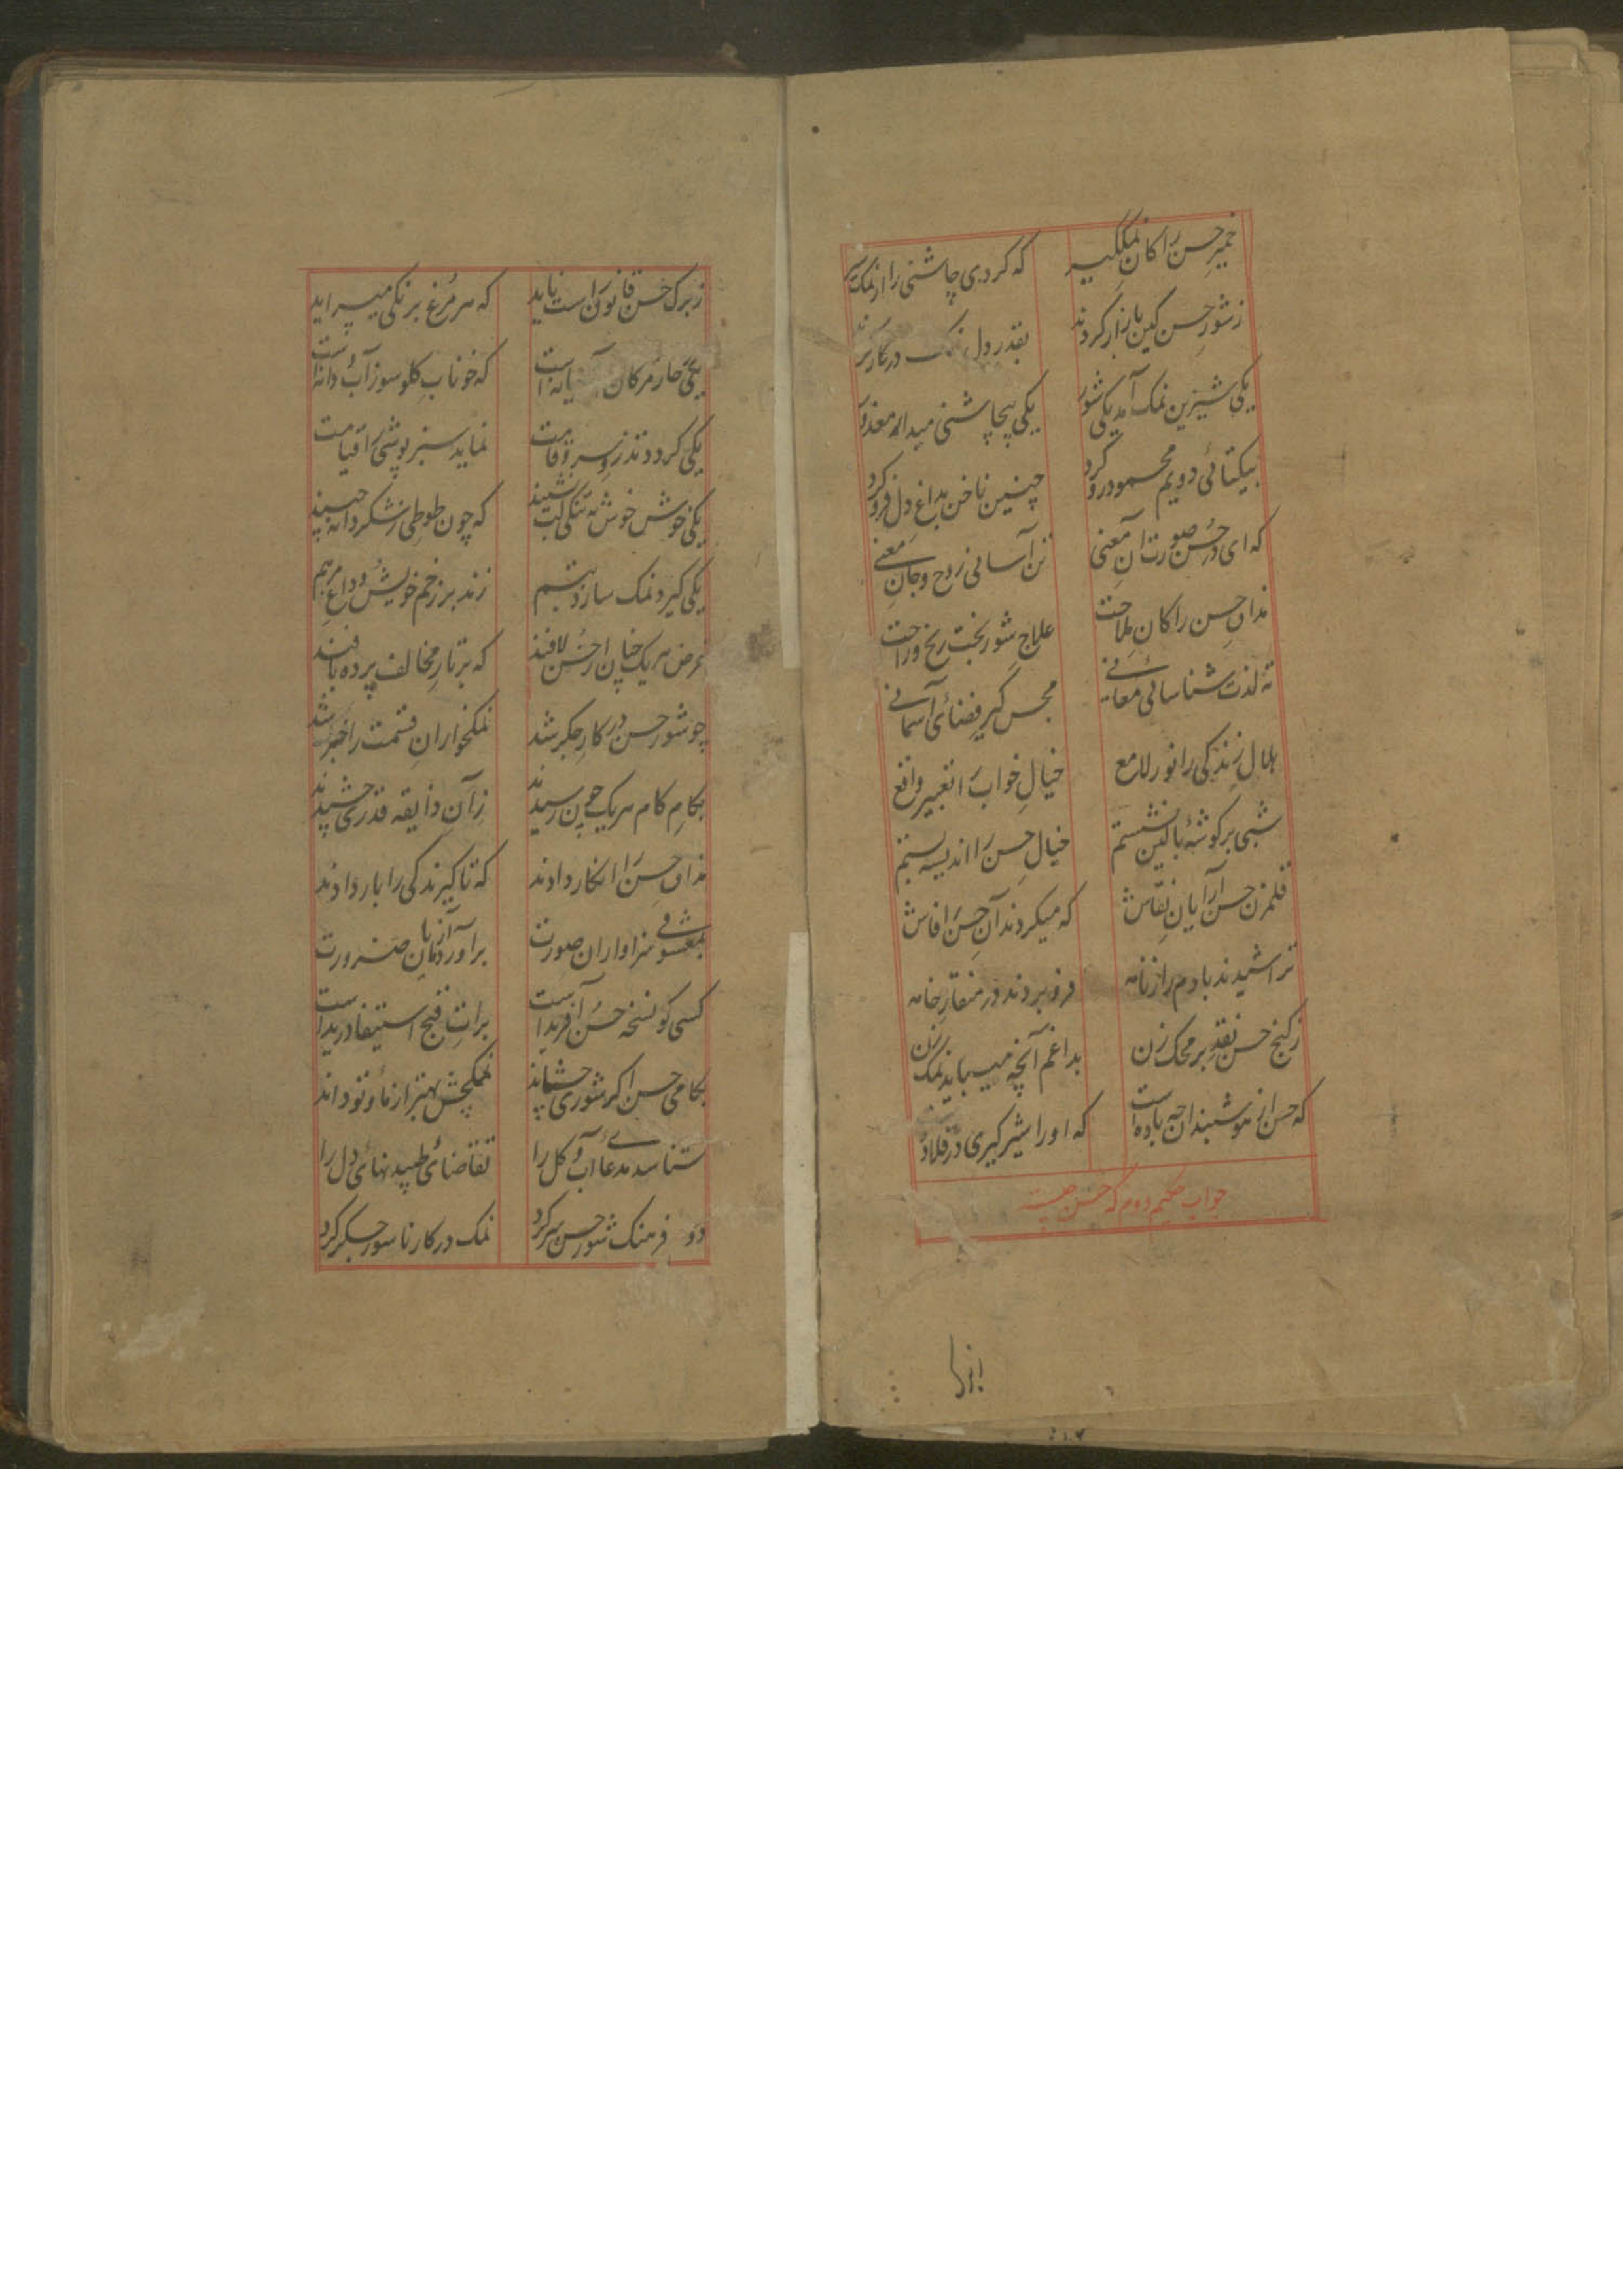 خمیر حسن را کان نمک گیر که کردی چاشنی را از نمک سیر
ز شور حسن کین بازار کردند بقدر دل نمک در کار کردند
یکی شیرین نمک آمد یکی شور یکی بیچاشنی میدار معذور
بیکتائی دویم محمود رو کرد چنین ناخن بداغ دل فرو کرد
که ای در حسن صورت آن معنی تن آسانی روح و جان معنی
مذاق حسن را کان ملاحت علاج شور بخت رنج و راحت
ته لذت شناسائی معانی مجس گیر فضای آسمانی
هلال زندگی را نور لامع خیال خواب را تعبیر واقع
شبی بر گوشهٔ بالین نشستم خیال حسن را اندیشه بستم
قلمزن حسن آرایان نقاش که میکردند آن حسن را فاش
تراشیدند بادم راز نامه فرو بردند در منقار خامه
ز گنج حسن نقد بر محک زن بداغم آنچه میباید نمک زن
که حسن از هوشمندان چه باده است که او را شیر گیری در قلاده
جواب حکیم دوم که حسن چیست
ز برگ حسن قانون راست ناید که هر مرغ برنگی میسراید
یکی خار مژگان است که خوناب گلو سوز آب و دانه است
یکی گردد تذرو سرو قامت نماید سبز پوشی را قیامت
یکی خوش خوش به تنگی لب نشیند که چون طوطی ز شکر دانه چیند
یکی گیرد نمک سازد تبسم زند بر زخم خویش و داغ مرهم
غرض هر یک چنان از حسن لافند که بر تار مخالف پرده بافند
چو شور حسن در کار جگر شد نمکخواران قسمت را خبر شد
بکام کام هر یک چون رسیدند از آن ذایقه قدری چشیدند
مذاق حسن را انکار دادند که تا گیرندگی را بار دادند
بمعشوقی سزاواران صورت برآورد آزمایان ضرورت
کسی کو نسخه حسن آفریده است برات قبح استیفا دریده است
بکامی حسن اگر شوری چشاند نمکچش بهتر از ما و تو داند
شناسد مدعای آب و گل را تقاضای طپیدنهائی دل را
دو فرهنگ شور حسن سر کرد نمک در کار ناسور جگر کرد